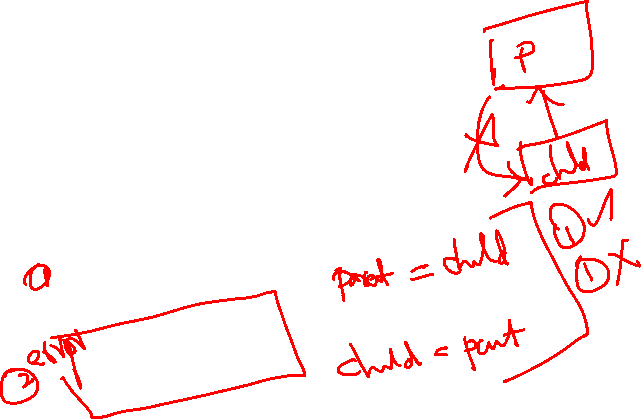 P
child
① ✓
① X
parent = child
child = parent
error
②